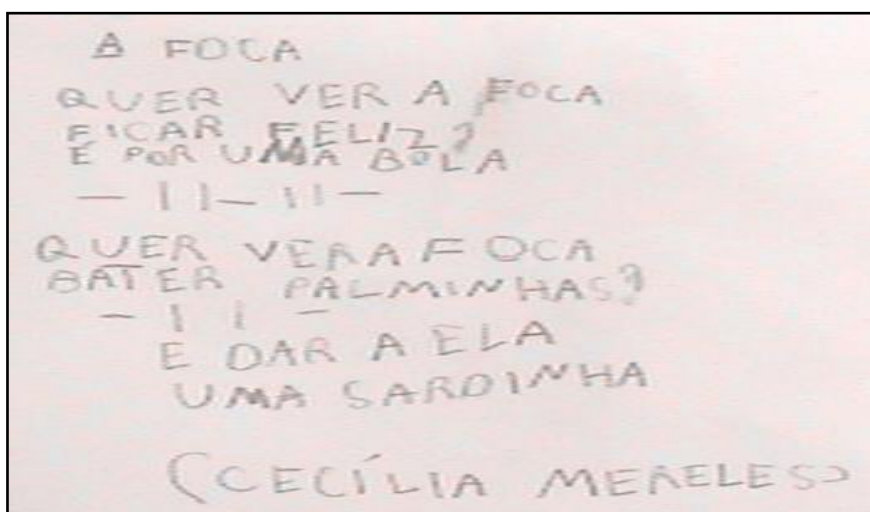 A FOCA
QUER VER A FOCA
FICAR FELIZ?
E POR UMA BOLA
— | | — | | —
QUER VER A FOCA
BATER PALMINHAS?
— | | —
E DAR A ELA
UMA SARDINHA
(CECÍLIA MERELES)